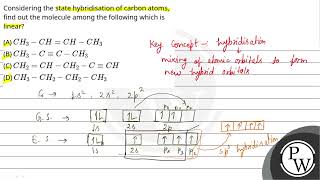 Considering the state hybridisation of carbon atoms,
find out the molecule among the following which is
linear?
(A) CH₃ − CH = CH − CH₃
(B) CH₃ − C ≡ C − CH₃
(C) CH₂ = CH − CH₂ − C ≡ CH
(D) CH₃ − CH₂ − CH₂ − CH₃
Key Concept :- hybridisation
mixing of atomic orbitals to form
new hybrid orbitals
C → 1s², 2s², 2p²
G.S → 1L 1L 1 1
1s 2s 2p
E.S → 1L 1 1 1 1
1s 2s Px Py Pz
sp³ hybridisation
PW